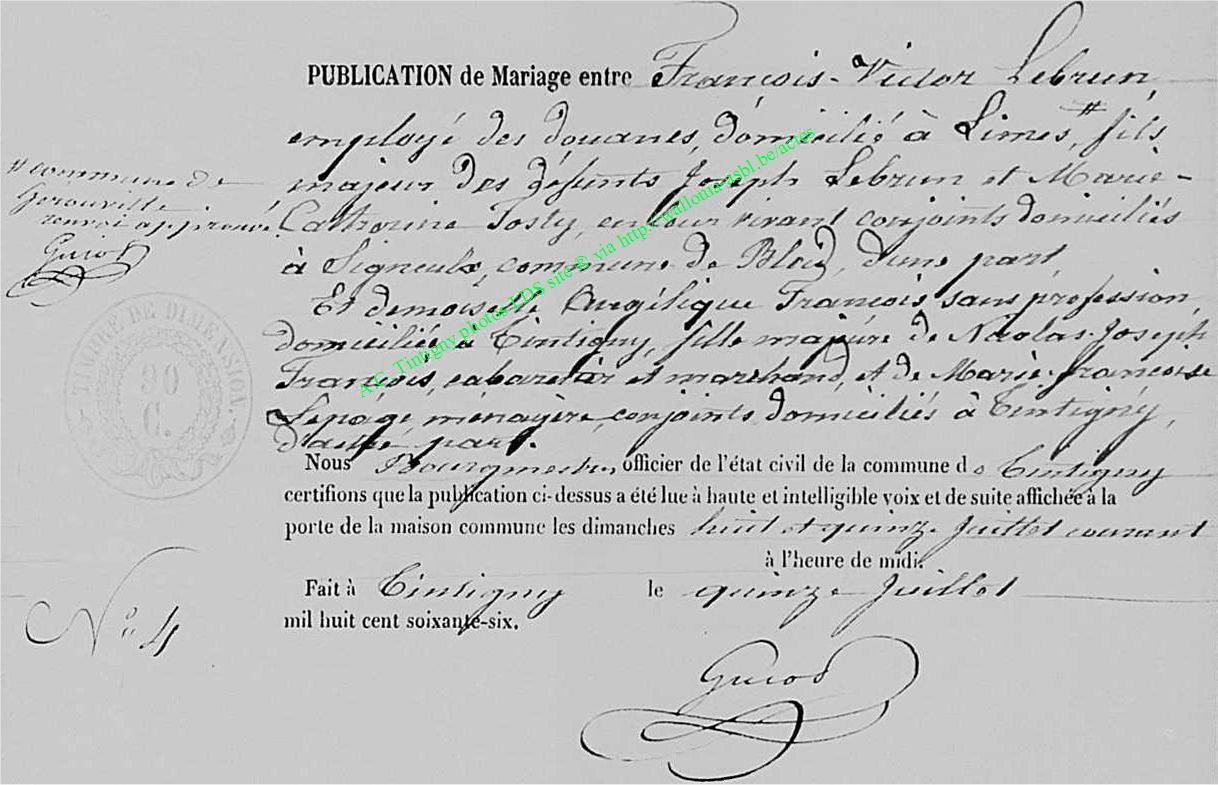 PUBLICATION de Mariage entre François-Victor Lebrun,
employé des douanes, domicilié à Limes, # fils
majeur des défunts Joseph Lebrun et Marie-
Catherine Tosty, en leur vivant conjoints domiciliés
à Signeulx, commune de Bleid, d'une part,
Et demoiselle Angélique François, sans profession,
domiciliée à Tintigny, fille majeure de Nicolas-Joseph
François, cabaretier et marchand, et de Marie-Françoise
Lepage, ménagère, conjoints domiciliés à Tintigny,
d'autre part.
# commune de
Gérouville
renvoi approuvé.
Guiot
TIMBRE DE DIMENSION.
90
C.
Nous Bourgmestre, officier de l'état civil de la commune de Tintigny
certifions que la publication ci-dessus a été lue à haute et intelligible voix et de suite affichée à la
porte de la maison commune les dimanches huit et quinze Juillet courant
à l'heure de midi.
Fait à Tintigny le quinze Juillet
mil huit cent soixante-six.
N° 4
Guiot
A.C. Tintigny photos LDS site © via http://wallonia-asbl.be/actes